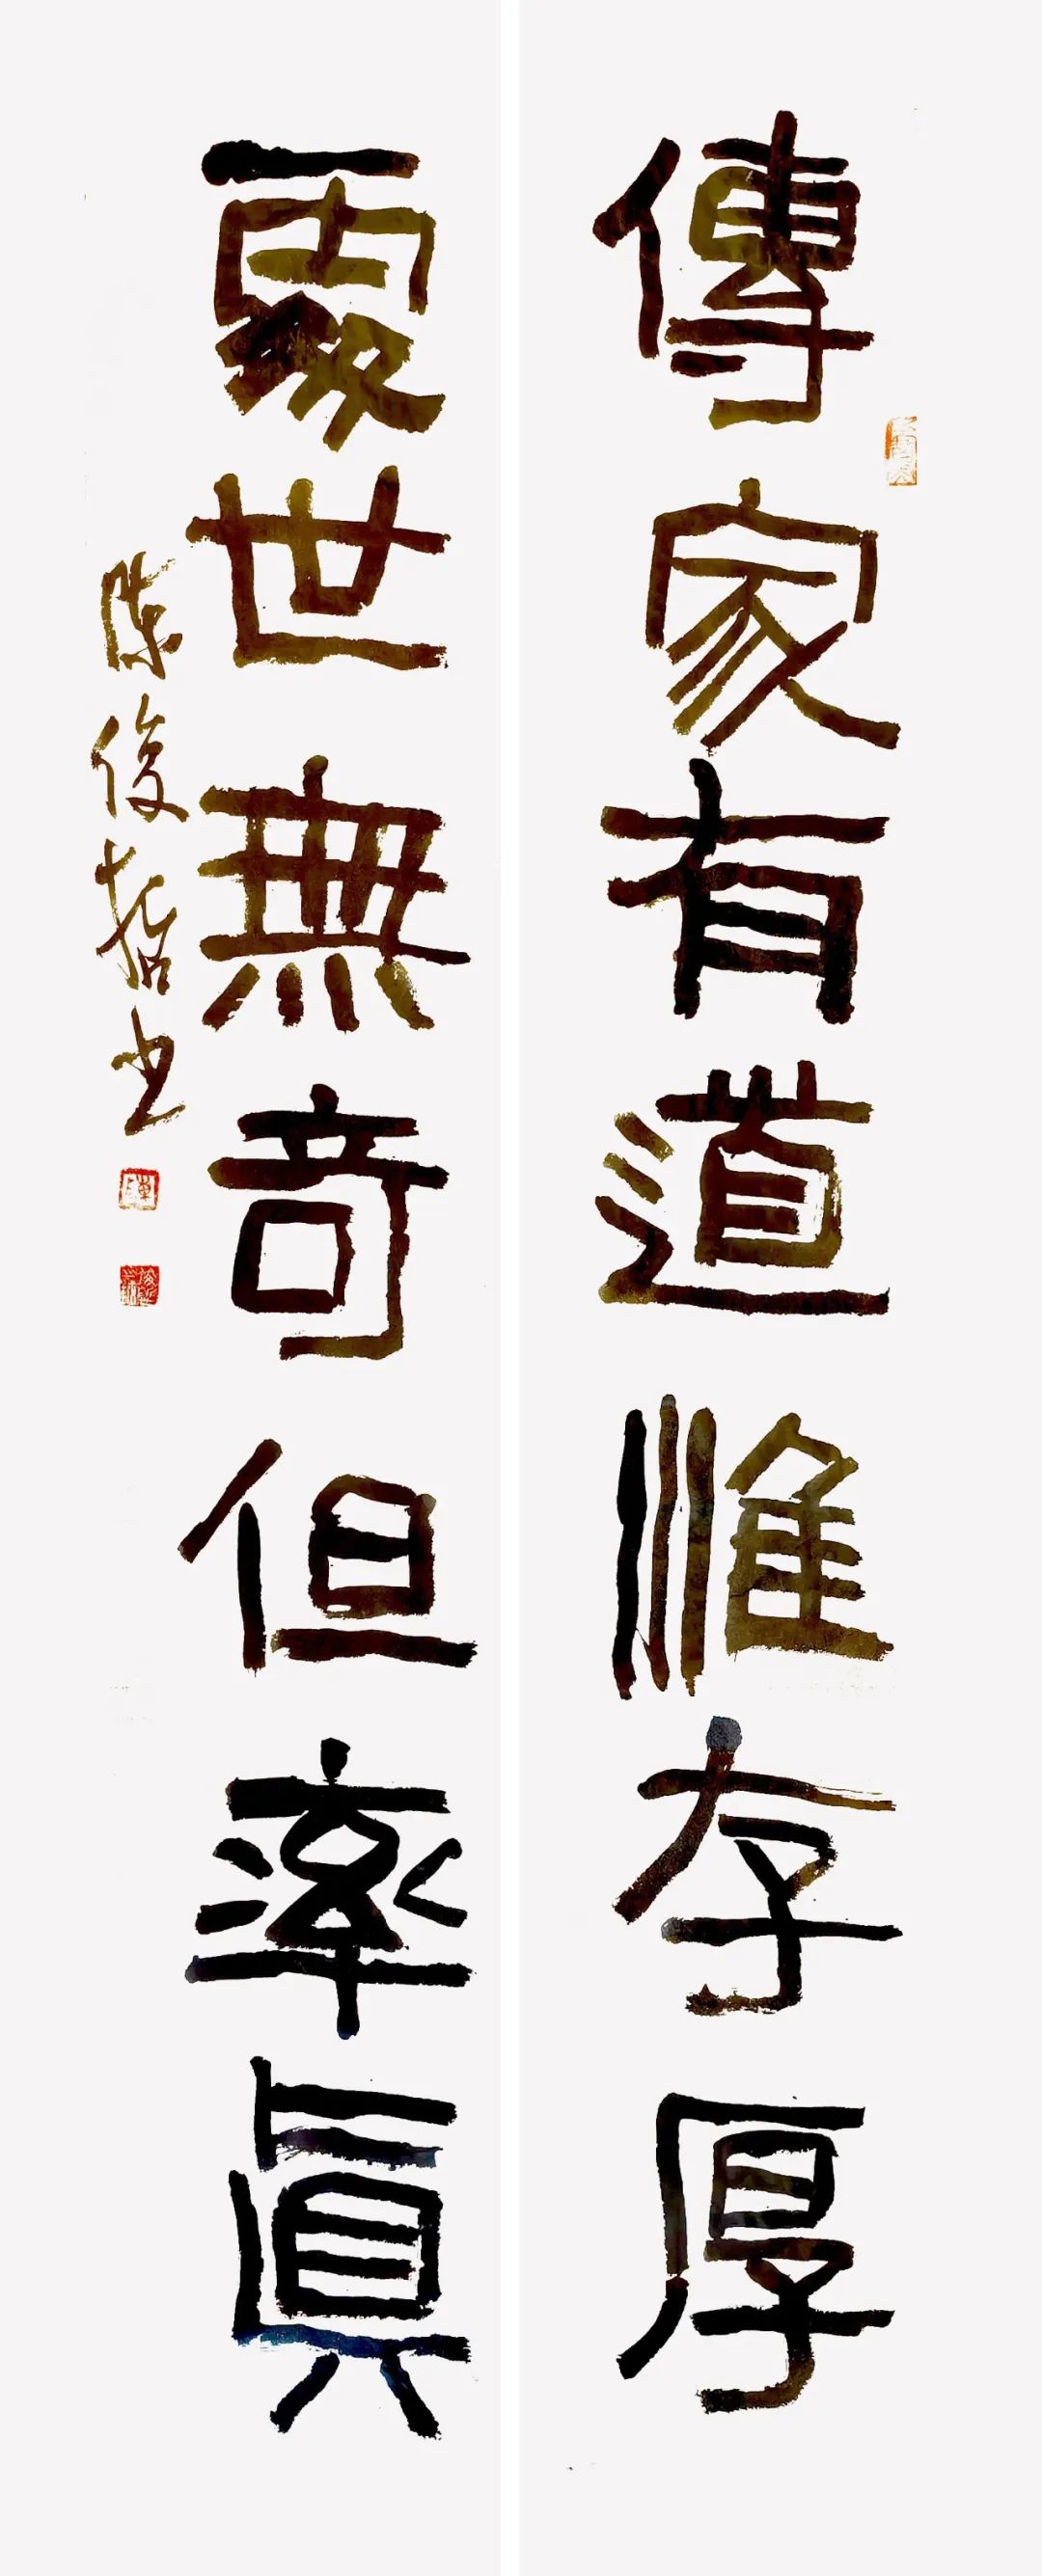 傳家有道惟存厚
處世無奇但率眞
陳俊哲书